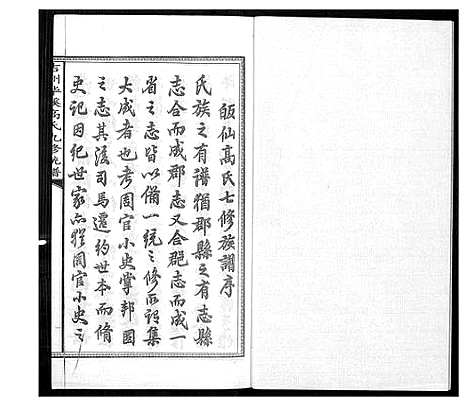 皈仙高氏七修族譜序
氏族之有譜猶郡縣之有志縣
志合而成郡志又合郡志而成一
省之志皆以備一統之修而諝集
大成者也考周官小史掌邦國
之志其後司馬遷約世本而脩
史記因紀世家亦猶周官小史之
高氏九修族譜